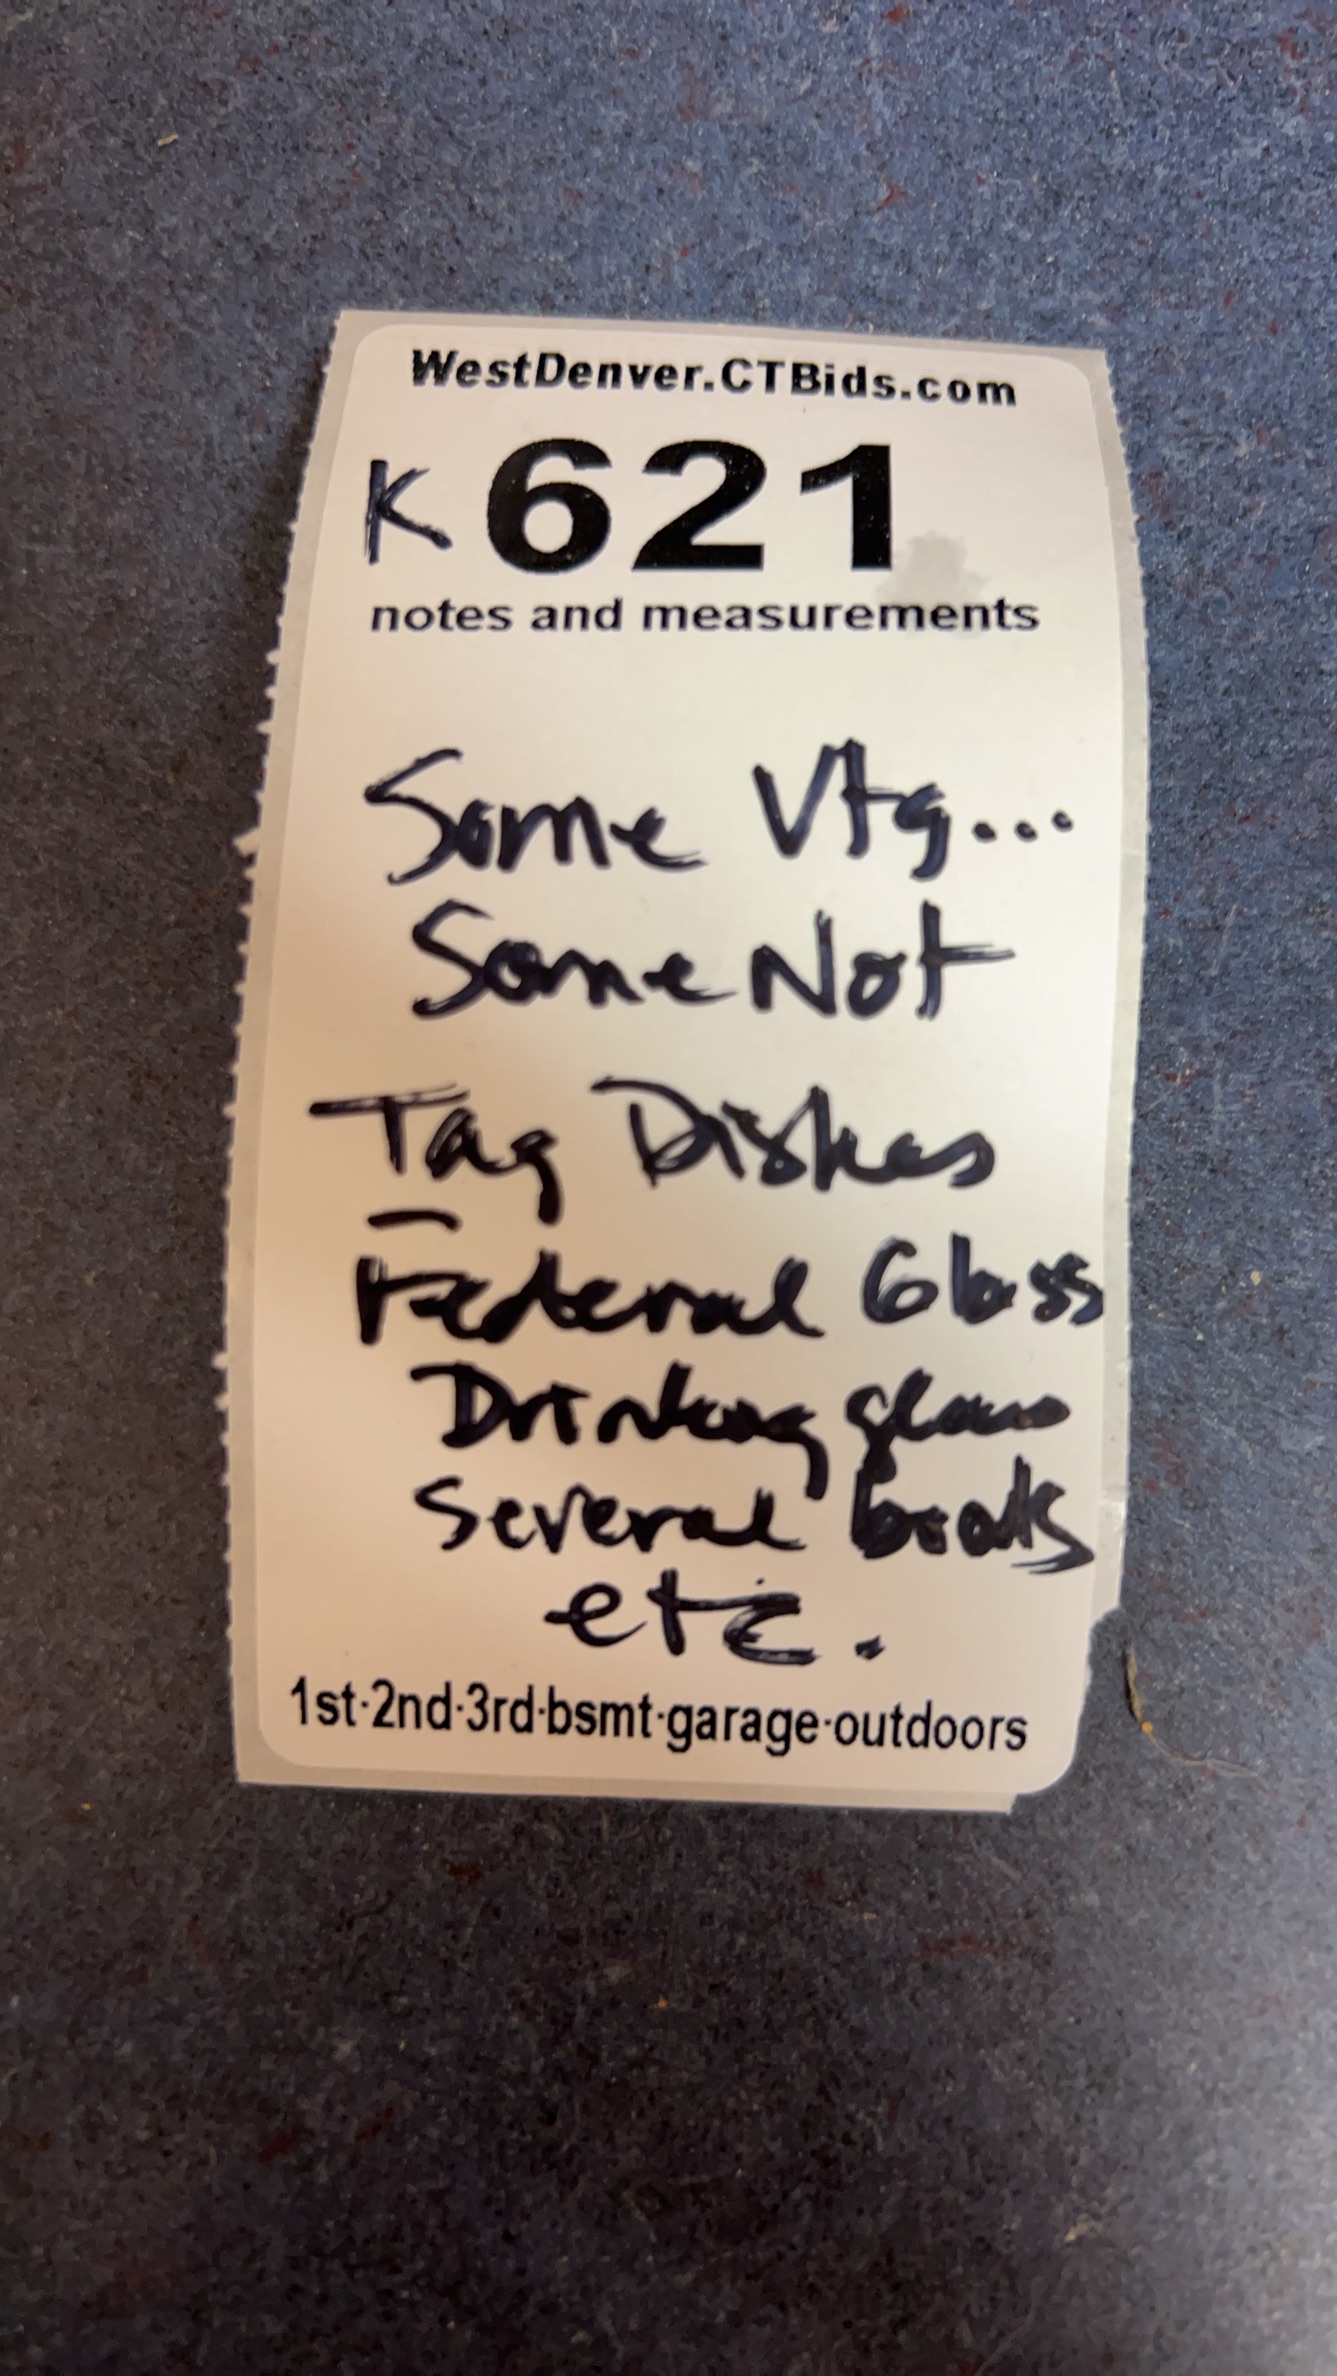 WestDenver.CTBids.com
K 621
notes and measurements
Some Vtg...
Some Not
Tag Dishes
Federal Glass
Drinking glass
Several
etc.
1st·2nd·3rd·bsmt·garage·outdoors